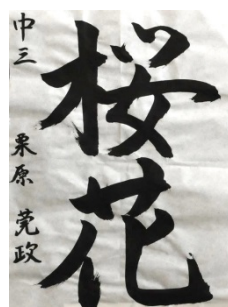 桜花
中三 栗原 莞政